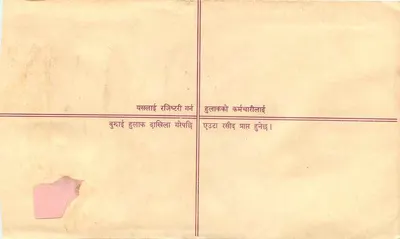 यसलाई रजिष्टरी गर्न हुलाकको कर्मचारीलाई
बुझाई हुलाक दाखिला गरेपछि एउटा रसीद प्राप्त हुनेछ।